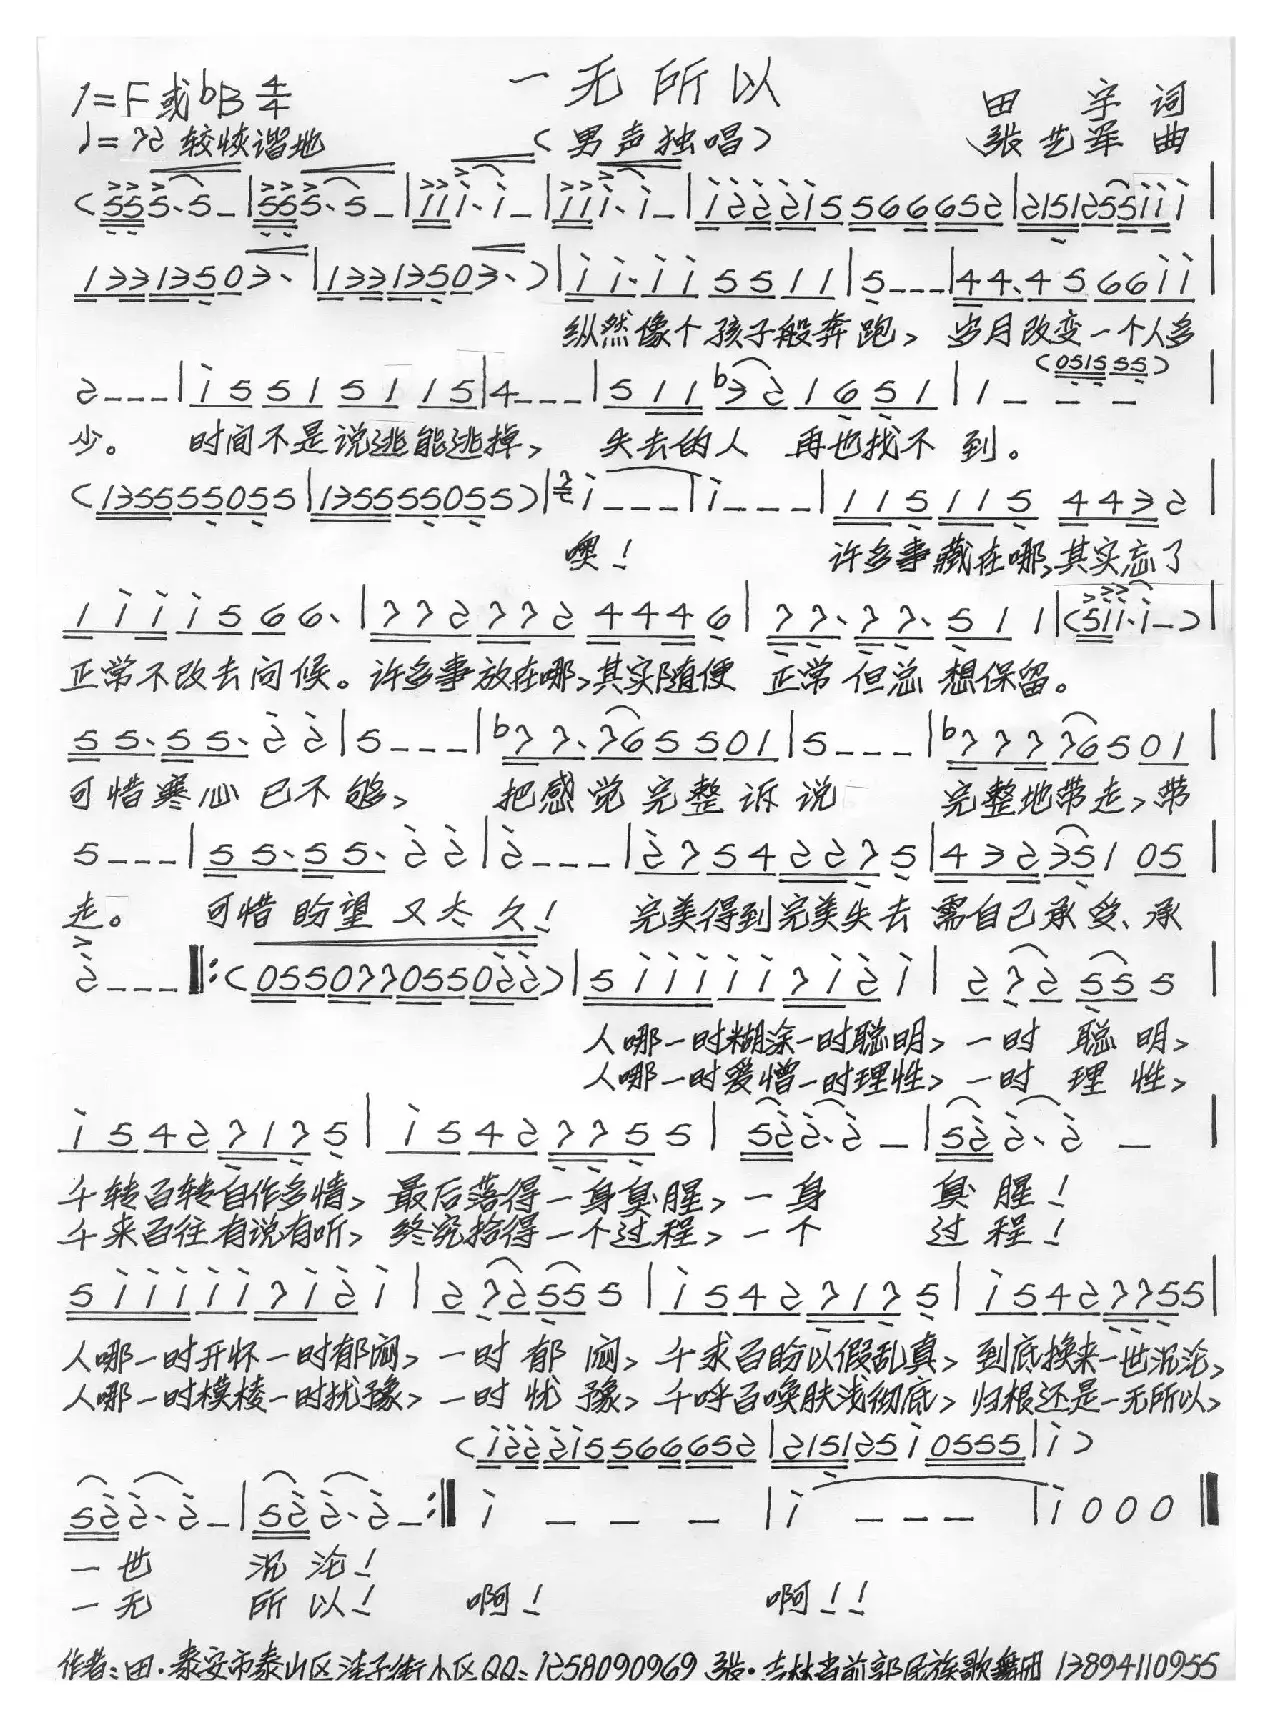 一无所以
1=F或bB 4/4
田 宇 词
♩=72 较诙谐地
(男声独唱)
张艺军 曲
(555·5-|555·5-|111·1-|111·1-|122215566652|215125511 1|
13313503·|13313503·)|11·115511|5---|44·456611|
纵然像个孩子般奔跑、 岁月改变一个人多
(051555)
2---|15515115|4---|511b321651|1---|
少。 时间不是说逃能逃掉、 失去的人 再也找不到。
(135555055|135555055)|1---|1---|115115 4432|
噢! 许多事藏在哪、其实忘了
1111566·|772772 4446|77·77·511|(511·1-)|
正常不改去问候。许多事放在哪、其实随便 正常但总想保留。
55·55·22|5---|b77·765501|5---|b77776501|
可惜寒心已不够、 把感觉完整诉说 完整地带走、带
5---|55·55·22|2---|27542275|43235105|
走。 可惜盼望又太久! 完美得到完美失去 需自己承受、承
2---‖:(055077055022)|511111712 1|272 555|
人哪一时糊涂一时聪明、一时 聪 明、
人哪一时爱憎一时理性、一时 理 性、
15427175|15427755|522·2-|522·2-|
千转百转自作多情、最后落得一身臭腥、一身 臭腥!
千来百往有说有听、终究拾得一个过程、一个 过程!
511111712 1|272555|15427175|15427755|
人哪一时开怀一时郁闷、一时 郁 闷、千求百盼以假乱真、到底换来一世沉沦、
人哪一时模棱一时犹豫、一时 犹 豫、千呼百唤肤浅彻底、归根还是一无所以、
(122215566652|2151251 0555|1)
522·2-|522·2-:‖1---|1---|1000‖
一世 沉沦!
一无 所以! 啊! 啊!!
作者:田·泰安市泰山区洼子街小区QQ:1258090969 张·吉林省前郭民族歌舞团 13894110955